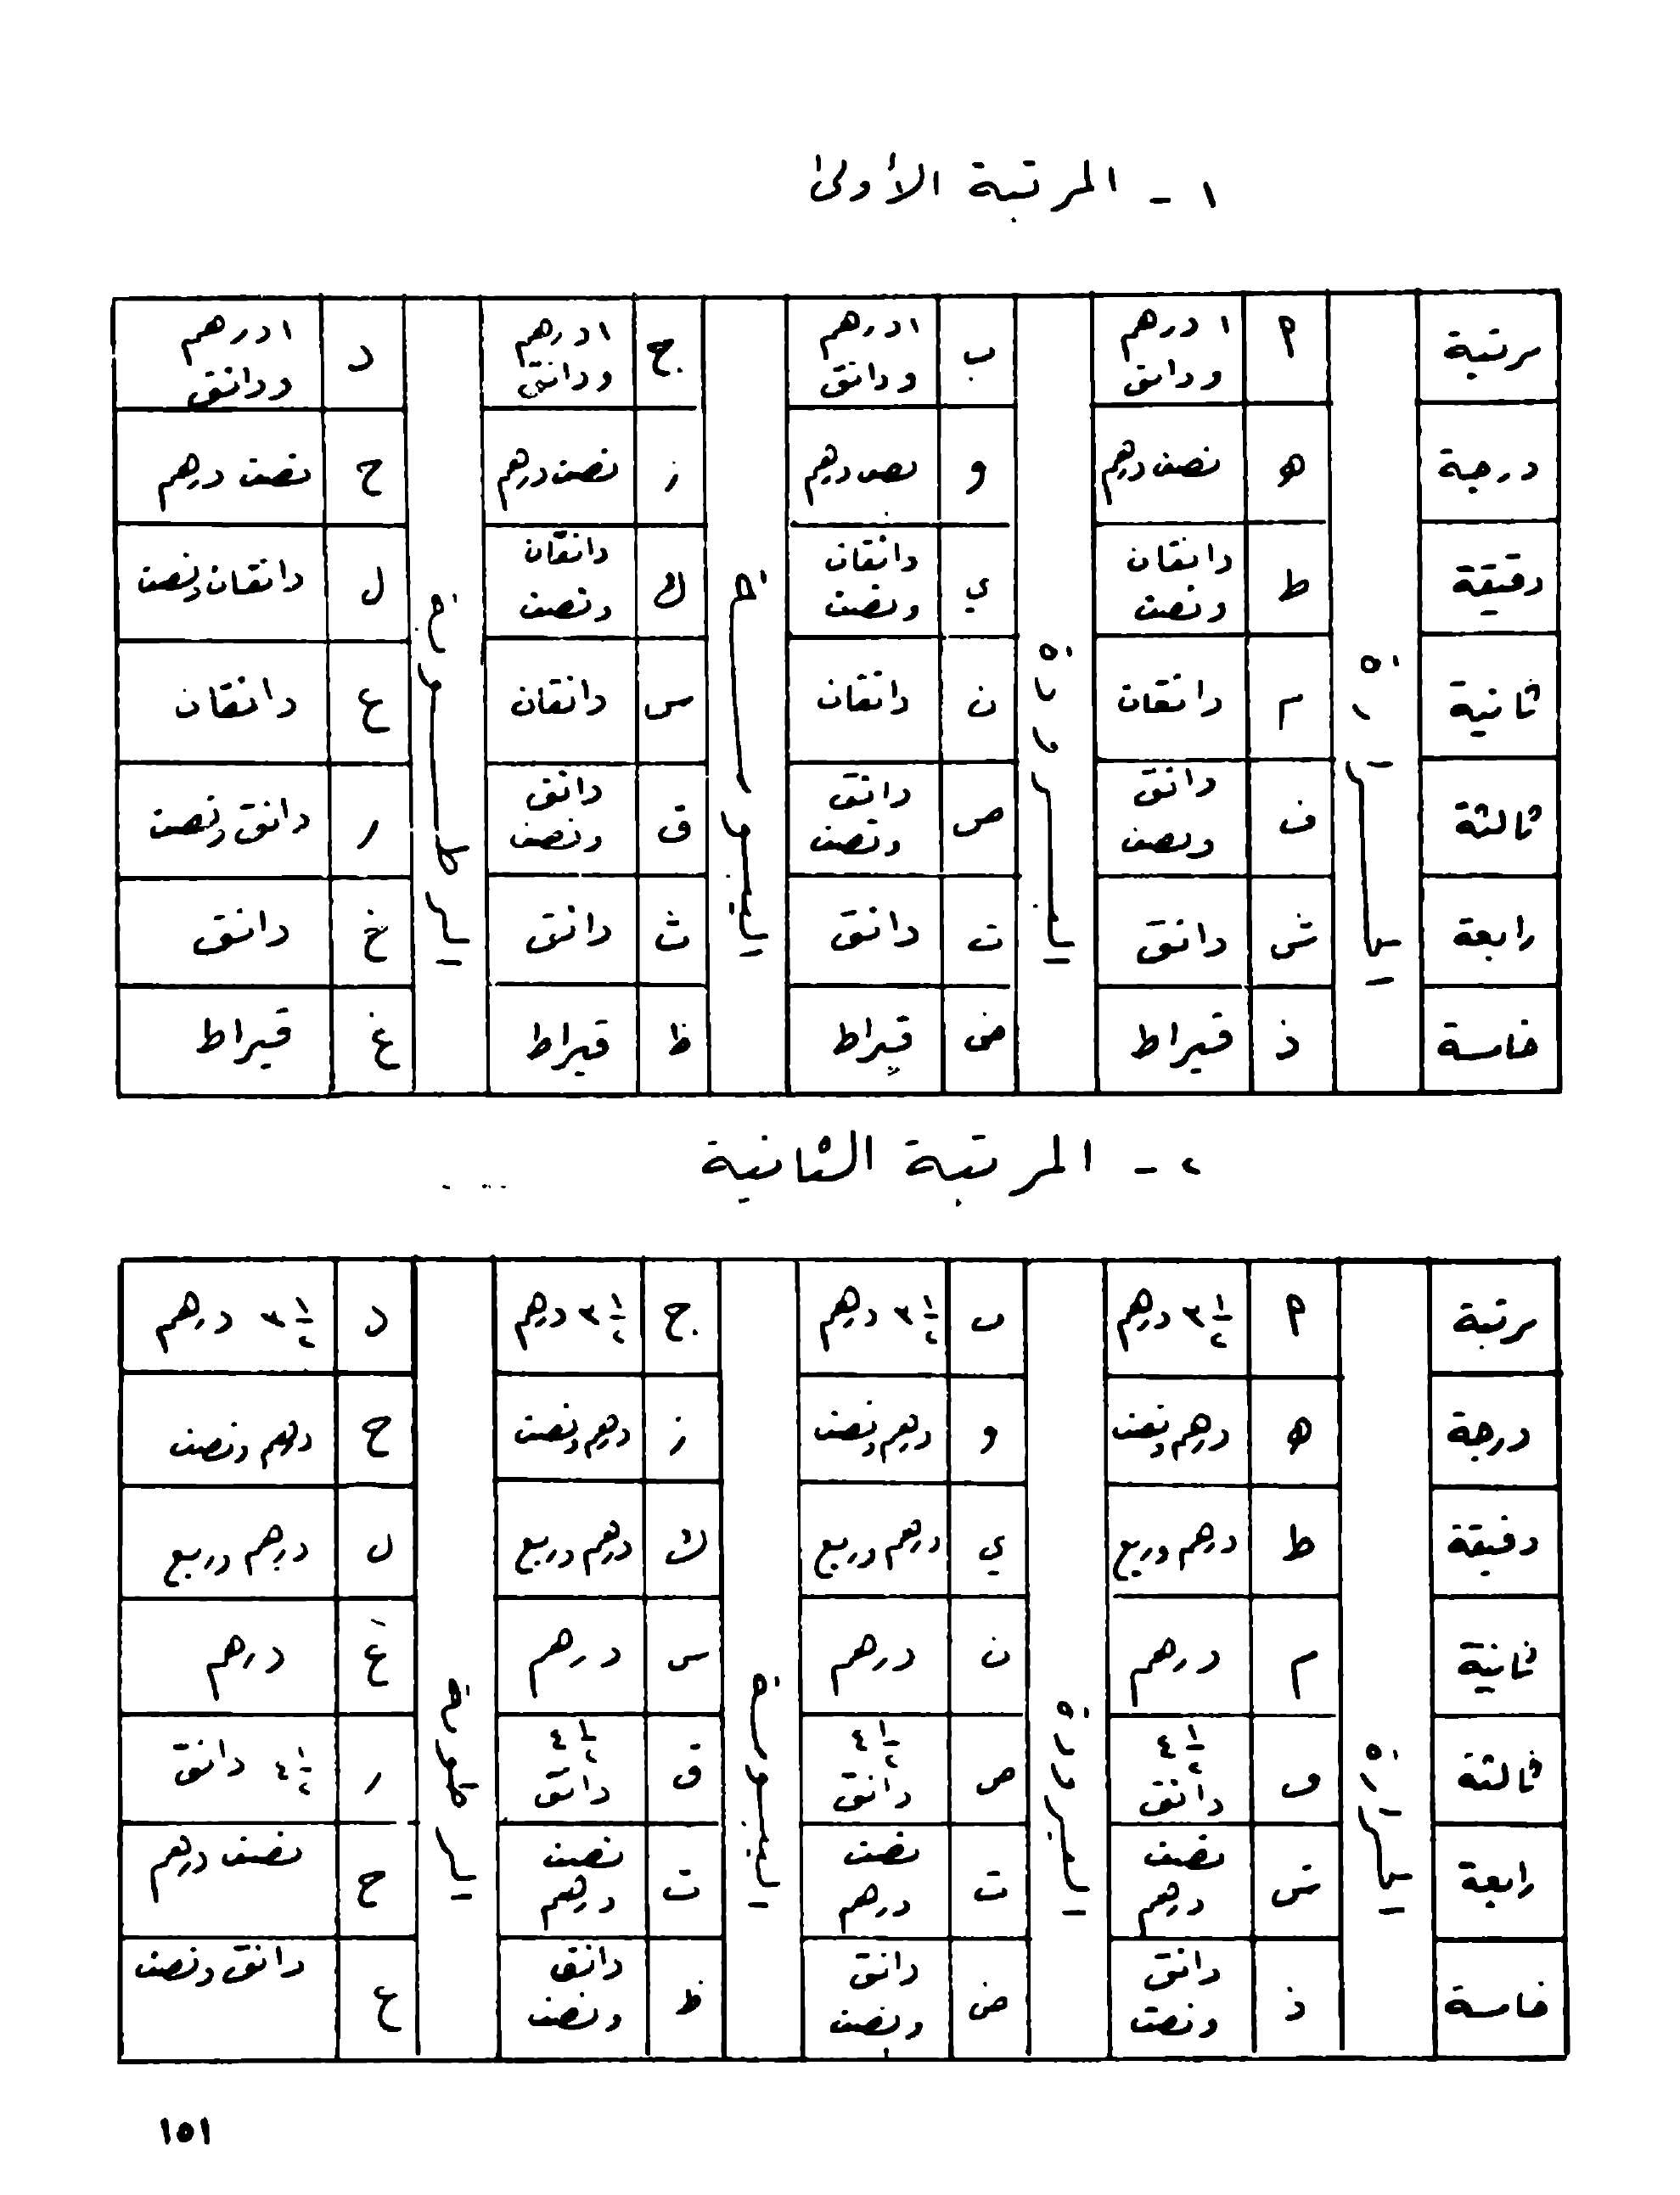 ١ - المرتبة الأولى
مرتبة ا ١ درهم ودانق ب ١ درهم ودانق ج ١ درهم ودانق د ١ درهم ودانق
درجة ه نصف درهم و نصف درهم ز نصف درهم ح نصف درهم
دقيقة ط دانقان ونصف ي دانقان ونصف ك دانقان ونصف ل دانقان ونصف
ثانية م دانقان ن دانقان س دانقان ع دانقان
ثالثة ف دانق ونصف ص دانق ونصف ق دانق ونصف ر دانق ونصف
رابعة ش دانق ت دانق ث دانق خ دانق
خامسة ذ قيراط ض قيراط ظ قيراط غ قيراط
٢ - المرتبة الثانية
مرتبة ا ٣ ١/٢ درهم ب ٣ ١/٢ درهم ج ٣ ١/٢ درهم د ٣ ١/٢ درهم
درجة ه درهم ونصف و درهم ونصف ز درهم ونصف ح درهم ونصف
دقيقة ط درهم وربع ي درهم وربع ك درهم وربع ل درهم وربع
ثانية م درهم ن درهم س درهم ع درهم
ثالثة ف ٤ ١/٢ دانق ص ٤ ١/٢ دانق ق ٤ ١/٢ دانق ر ٤ ١/٢ دانق
رابعة ش نصف درهم ت نصف درهم ت نصف درهم ح نصف درهم
خامسة ذ دانق ونصف ض دانق ونصف ظ دانق ونصف ع دانق ونصف
١٥١